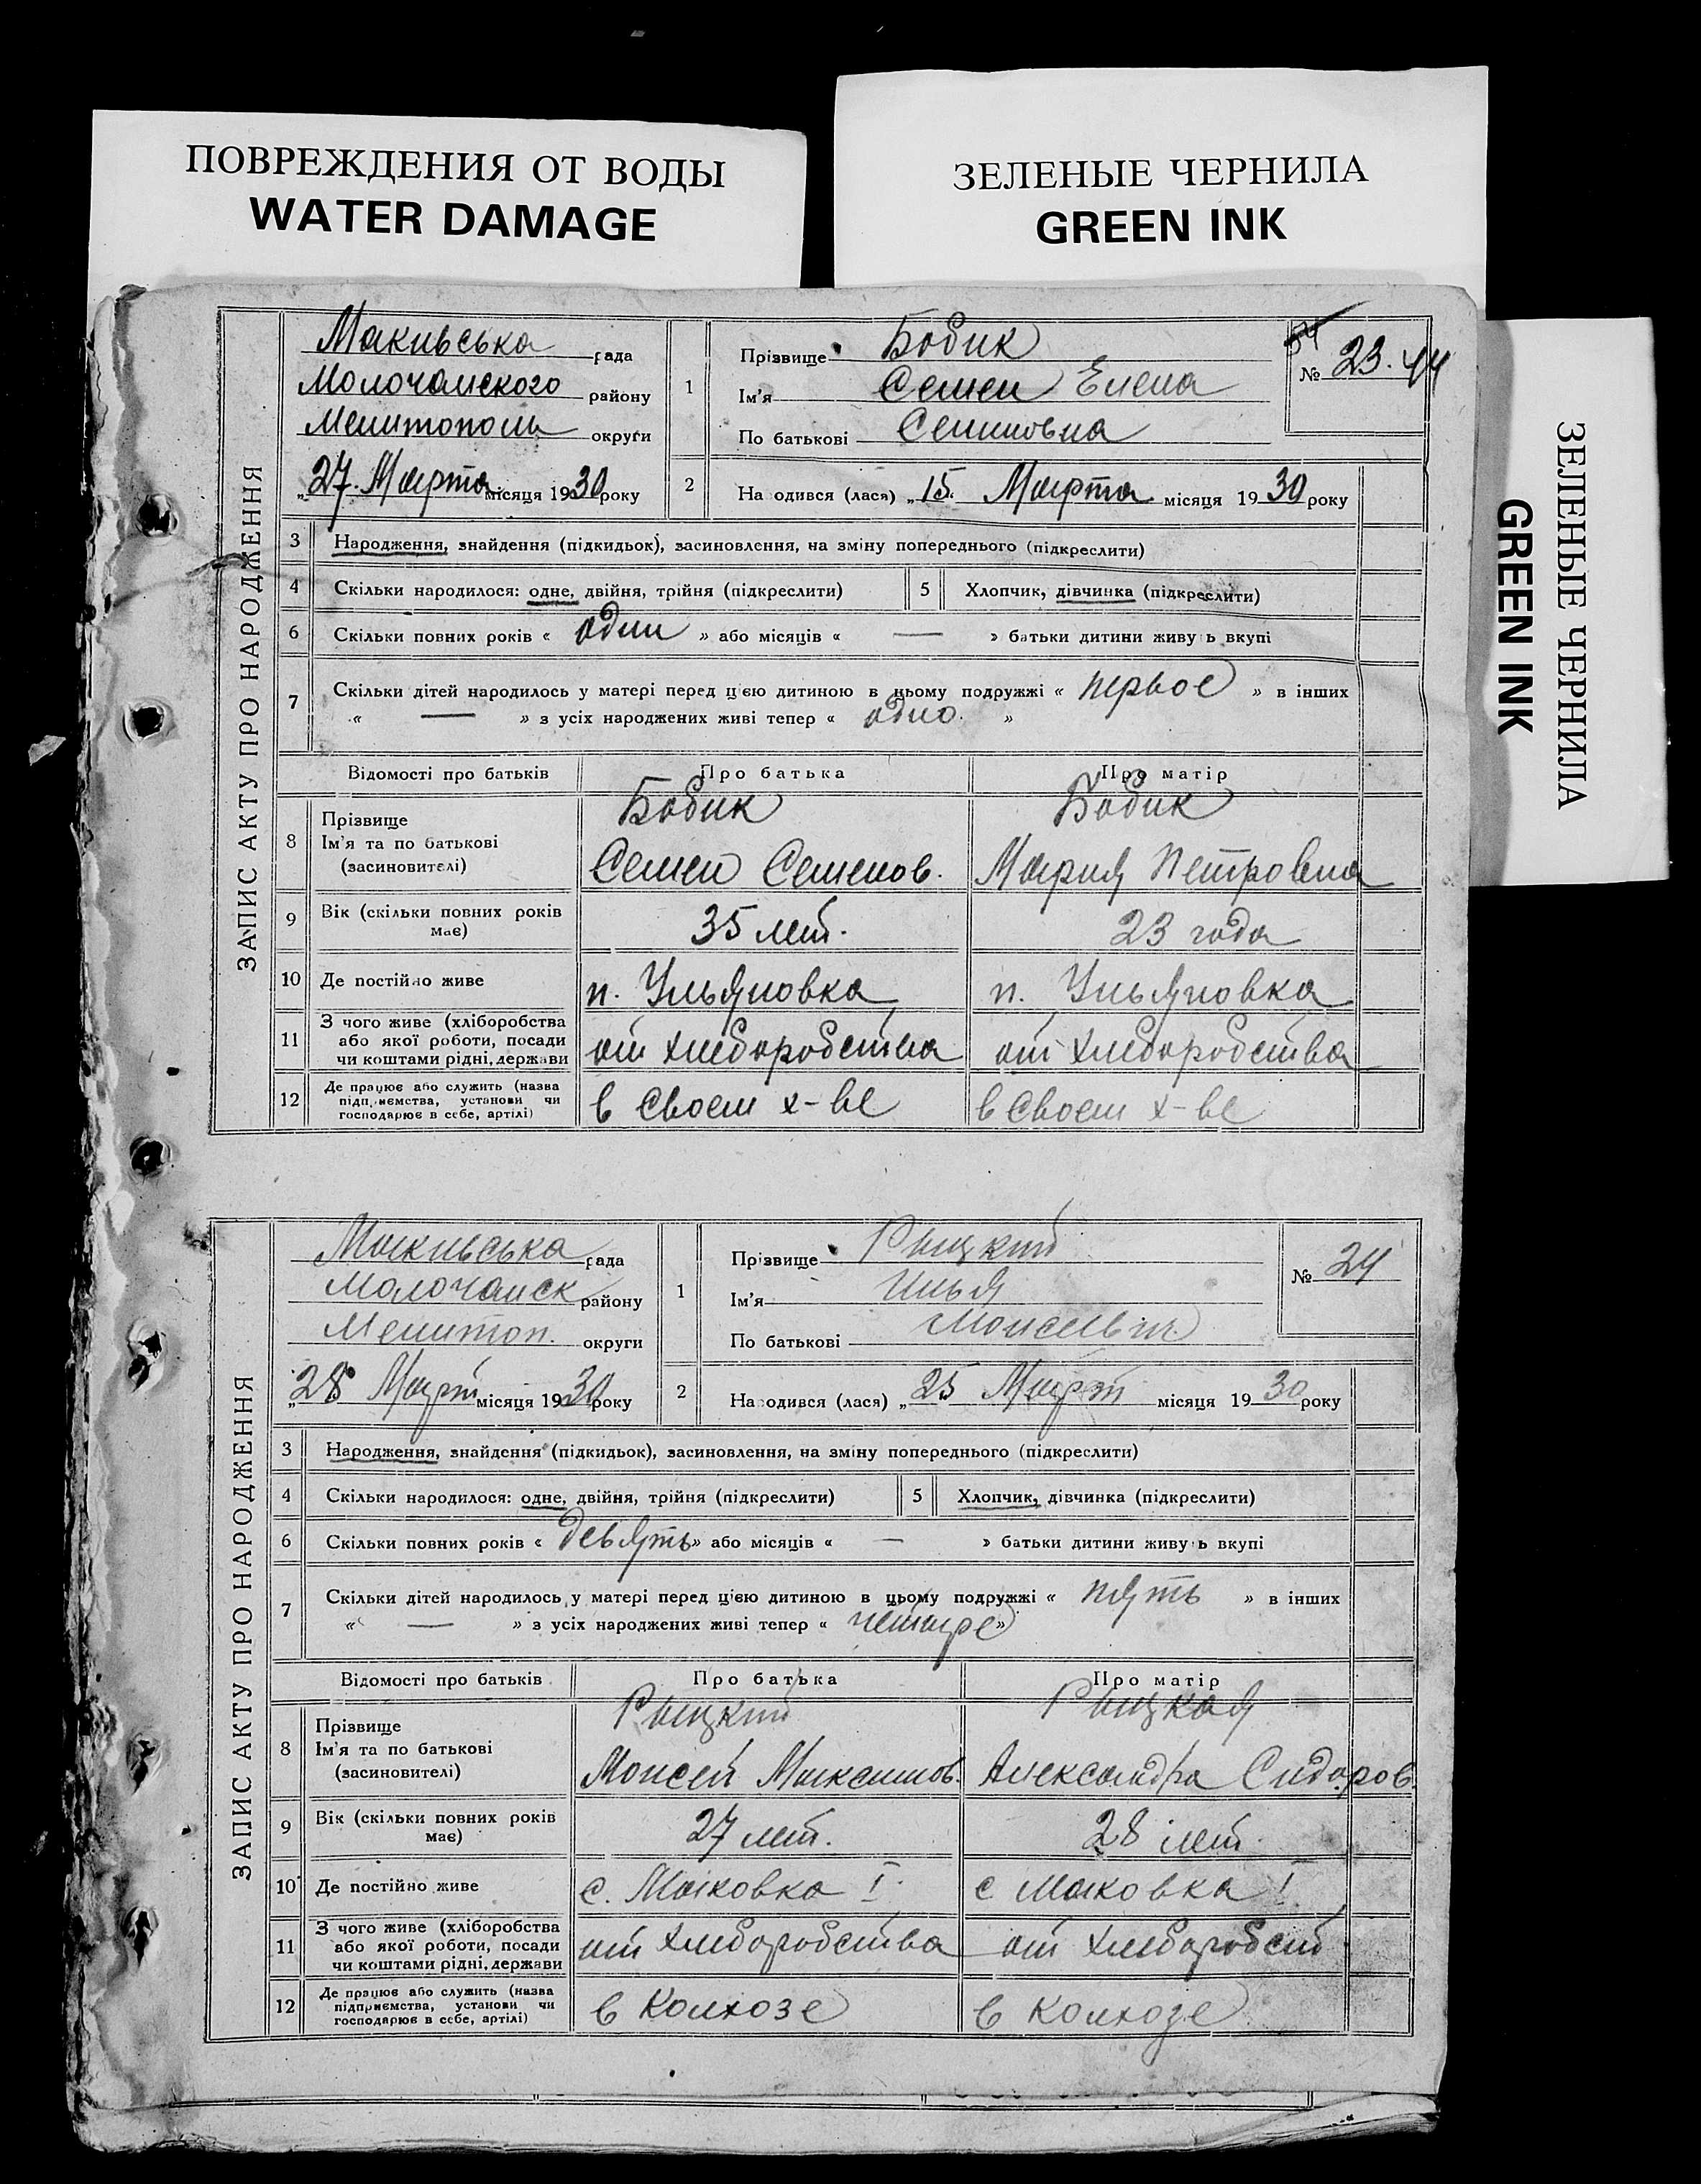 ПОВРЕЖДЕНИЯ ОТ ВОДЫ
WATER DAMAGE
ЗЕЛЕНЫЕ ЧЕРНИЛА
GREEN INK
ЗЕЛЕНЫЕ ЧЕРНИЛА
GREEN INK
ЗАПИС АКТУ ПРО НАРОДЖЕННЯ
Макивська рада
Молочамского району
Мелитополь округи
„27. Марта місяця 1930 року
1
Прізвище Бобик
Ім'я Семен Елена
По батькові Семиновна
№ 23. 44
2 На одився (лася) „15. Марта місяця 1930 року
3 Народження, знайдення (підкидьок), засиновлення, на зміну попереднього (підкреслити)
4 Скільки народилося: одне, двійня, трійня (підкреслити) 5 Хлопчик, дівчинка (підкреслити)
6 Скільки повних років « один » або місяців « — » батьки дитини живу ь вкупі
7 Скільки дітей народилось у матері перед цією дитиною в цьому подружжі « первое » в інших
« — » з усіх народжених живі тепер « одно. »
Відомості про батьків Про батька Про матір
8 Прізвище Бобик Бобик
Ім'я та по батькові
(засиновителі) Семен Семенов. Мария Петровна
9 Вік (скільки повних років має) 35 лет. 23 года
10 Де постійно живе п. Ульяновка п. Ульяновка
11 З чого живе (хліборобства
або якої роботи, посади
чи коштами рідні, держави от хлеборобства от хлеборобства
12 Де працює або служить (назва
підприємства, установи чи
господарює в себе, артілі) в своем х-ве в своем х-ве
ЗАПИС АКТУ ПРО НАРОДЖЕННЯ
Макивська рада
Молочамск району
Мелитоп. округи
„28 Март місяця 1930 року
1
Прізвище Рыцкий
Ім'я Илья
По батькові Моисеевич
№ 24
2 На одився (лася) „25 Март місяця 1930 року
3 Народження, знайдення (підкидьок), засиновлення, на зміну попереднього (підкреслити)
4 Скільки народилося: одне, двійня, трійня (підкреслити) 5 Хлопчик, дівчинка (підкреслити)
6 Скільки повних років « девять » або місяців « — » батьки дитини живу ь вкупі
7 Скільки дітей народилось у матері перед цією дитиною в цьому подружжі « пять » в інших
« — » з усіх народжених живі тепер « четыре »
Відомості про батьків Про батька Про матір
8 Прізвище Рыцкий Рыцкая
Ім'я та по батькові
(засиновителі) Моисей Максимов. Александра Сидоров.
9 Вік (скільки повних років має) 27 лет. 28 лет.
10 Де постійно живе с. Маковка I. с Маковка I
11 З чого живе (хліборобства
або якої роботи, посади
чи коштами рідні, держави от хлеборобства от хлеборобст
12 Де працює або служить (назва
підприємства, установи чи
господарює в себе, артілі) в колхозе в колхозе